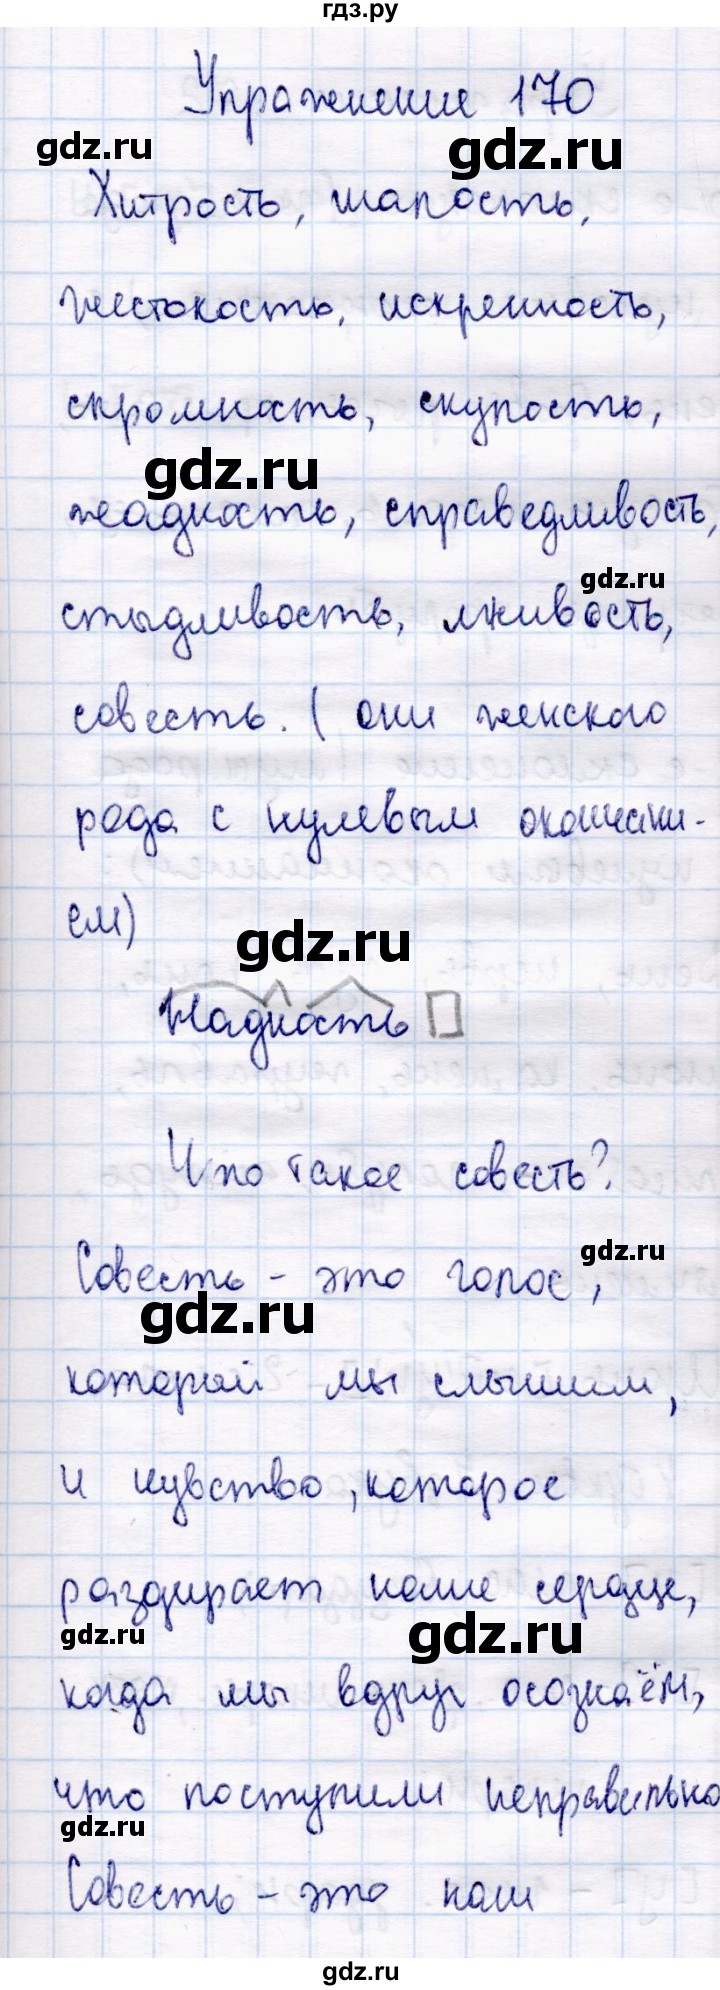 гдз.ру
Упражнение 170
gdz.ru
gdz.ru
Хитрость, шалость,
жестокость, искренность,
скромность, скупость,
gdz.ru
жадность, справедливость,
gdz.ru
стыдливость, лживость,
совесть. ( они женского
рода с нулевым окончани-
ем)
gdz.ru
Жадность
Что такое совесть?
gdz.ru
Совесть - это голос,
gdz.ru
который мы слышим,
и чувство, которое
раздирает наше сердце,
gdz.ru
gdz.ru
когда мы вдруг осознаём,
что поступили неправильно
gdz.ru
Совесть - это наш
gdz.ru